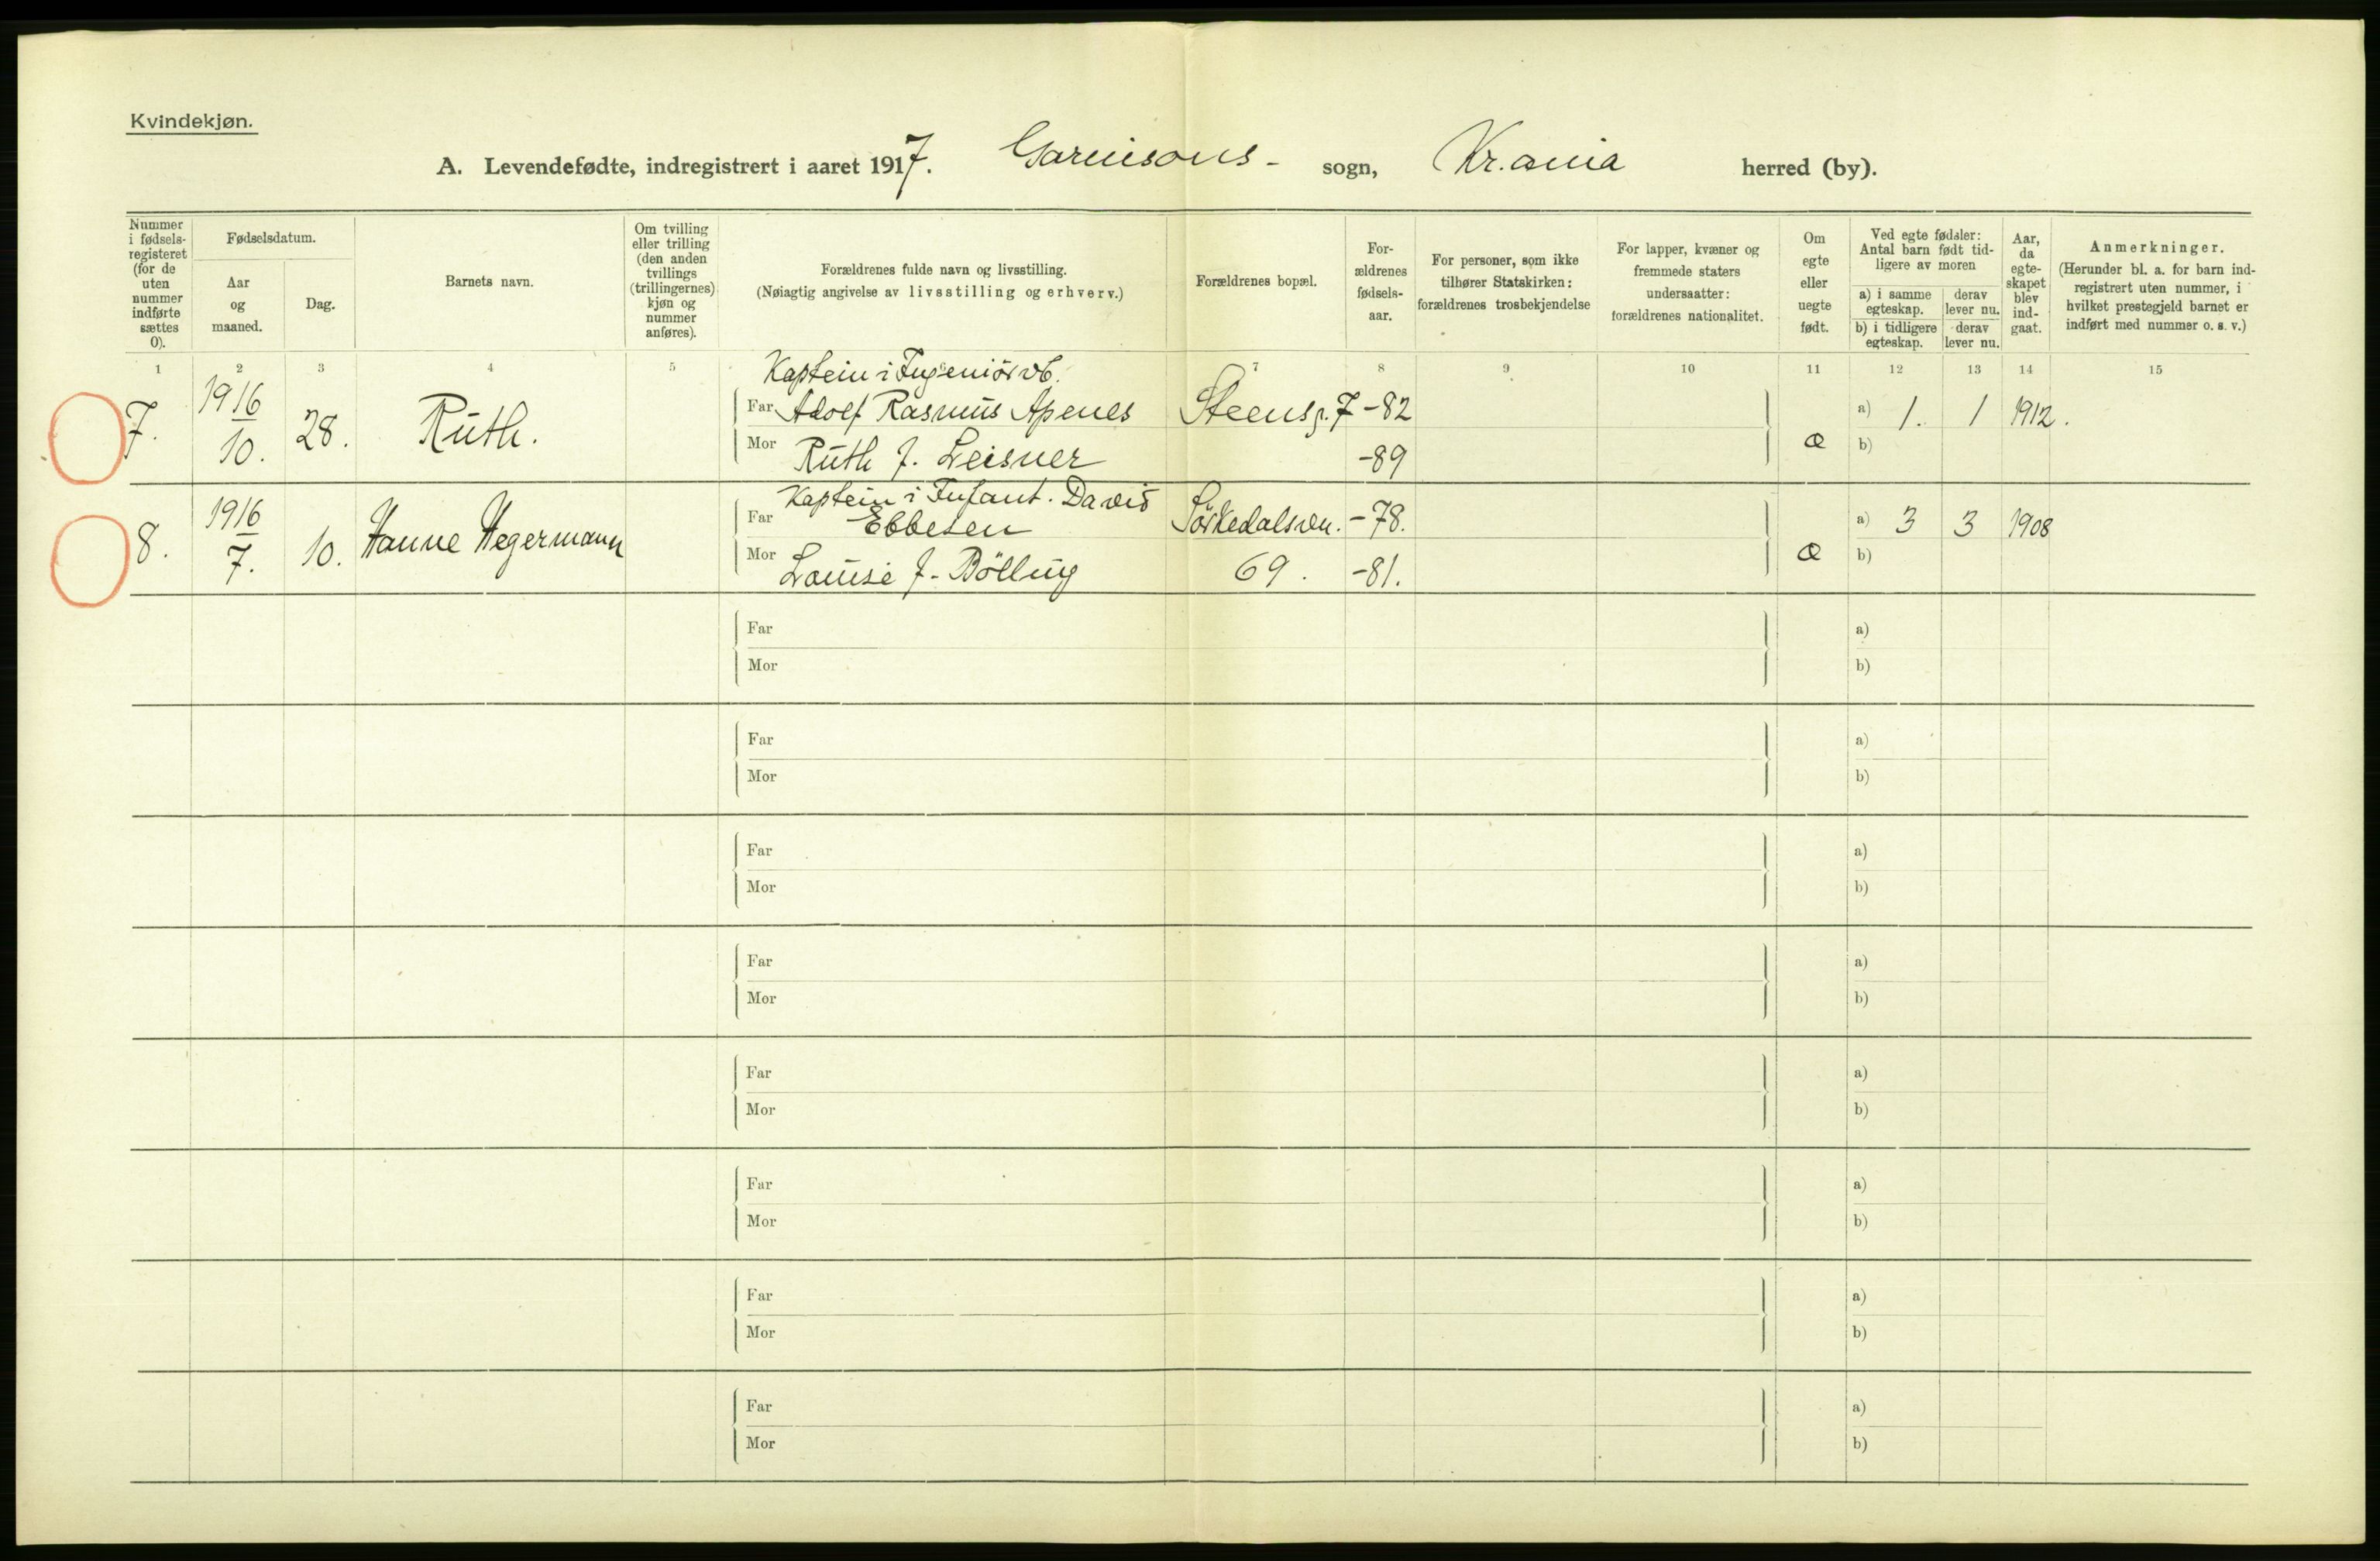 Kvindekjøn.
A. Levendefødte, indregistrert i aaret 1917. Garnisons- sogn, Kr.ania herred (by).
Nummer i fødsels-registeret (for de uten nummer indførte sættes 0).
Fødselsdatum.
Aar og maaned.
Dag.
Barnets navn.
Om tvilling eller trilling (den anden tvillings (trillingernes) kjøn og nummer anføres).
Forældrenes fulde navn og livsstilling.
(Nøiagtig angivelse av livsstilling og erhverv.)
Forældrenes bopæl.
For-ældrenes fødsels-aar.
For personer, som ikke tilhører Statskirken: forældrenes trosbekjendelse
For lapper, kvæner og fremmede staters undersaatter: forældrenes nationalitet.
Om egte eller uegte født.
Ved egte fødsler: Antal barn født tid-ligere av moren
a) i samme egteskap. derav lever nu.
b) i tidligere egteskap. derav lever nu.
Aar, da egte-skapet blev ind-gaat.
Anmerkninger.
(Herunder bl. a. for barn ind-registrert uten nummer, i hvilket prestegjeld barnet er indført med nummer o. s. v.)
1 2 3 4 5 7 8 9 10 11 12 13 14 15
Kaptein i Ingeniørvb.
7. 1916 10. 28. Ruth. Far Adolf Rasmus Apenes Steensg. 7 -82 a) 1. 1 1912.
Mor Ruth f. Leisner -89 æ b)
Kaptein i Infant. David
8. 1916 7. 10. Hanne Hegermann Far Ebbesen Sørkedalsvn. -78. a) 3 3 1908
Mor Louise f. Bölling 69. -81. æ b)
Far a)
Mor b)
Far a)
Mor b)
Far a)
Mor b)
Far a)
Mor b)
Far a)
Mor b)
Far a)
Mor b)
Far a)
Mor b)
Far a)
Mor b)